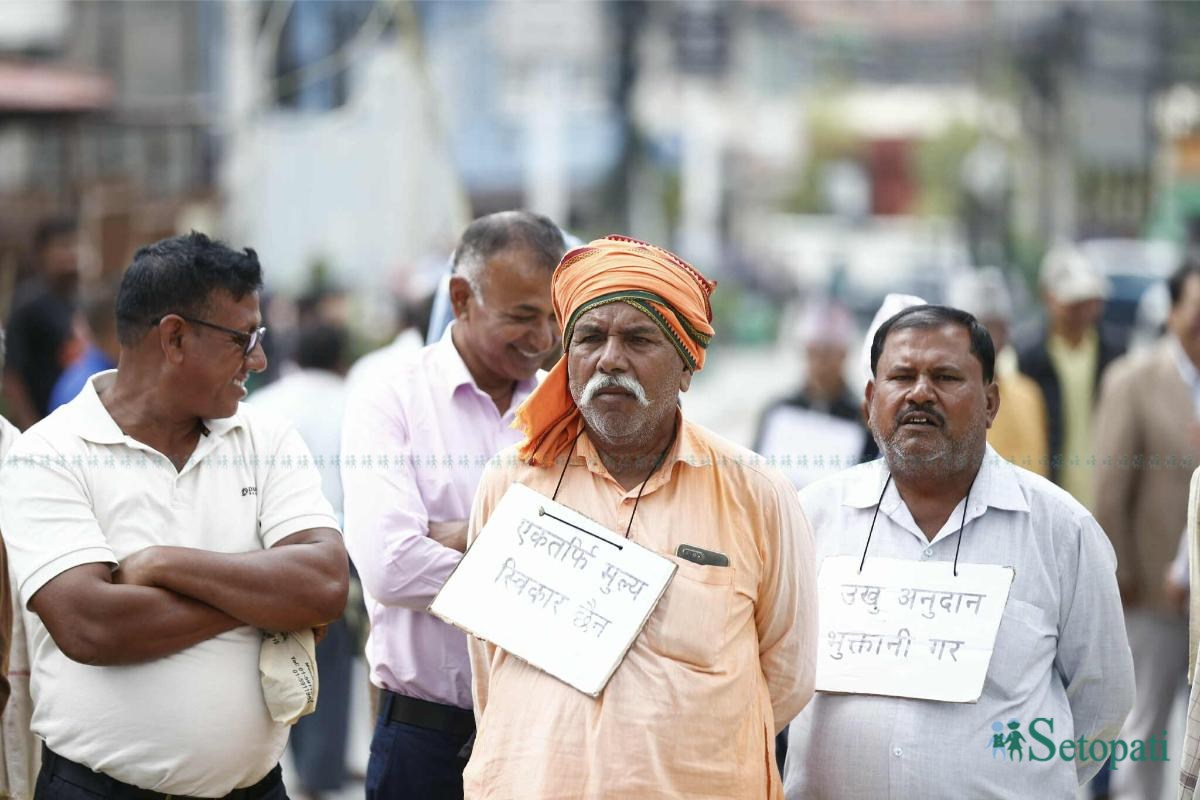 एकतर्फि मुल्य
स्विकार छैन
उखु अनुदान
भुक्तानी गर
Setopati